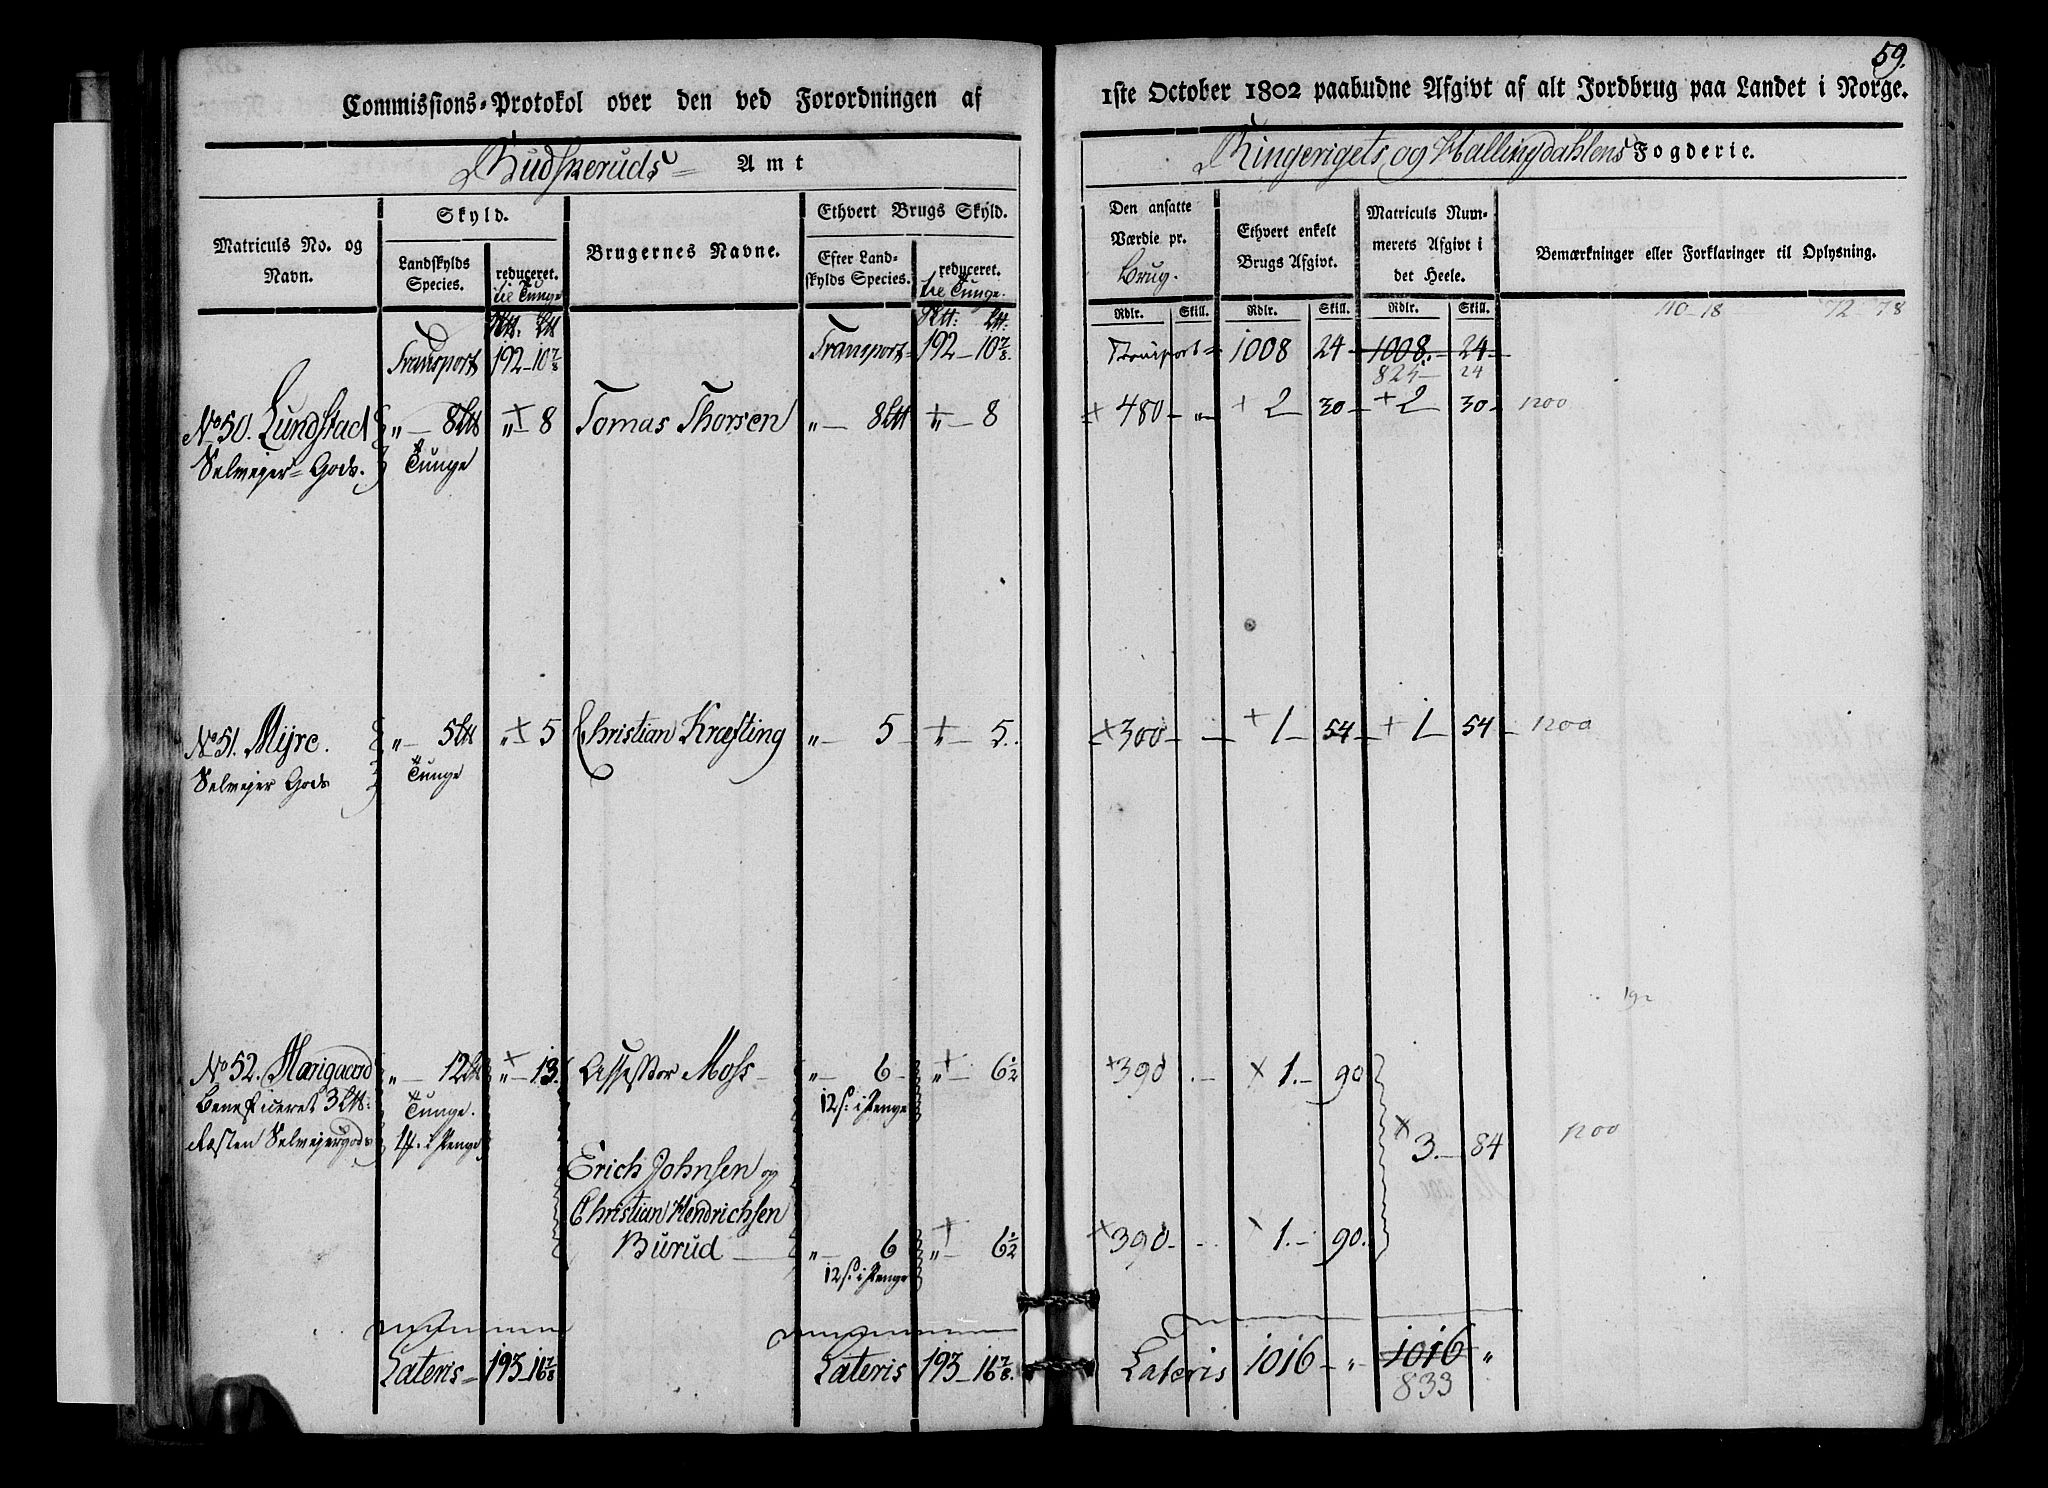 59.
Commissions-Protokol over den ved Forordningen af
1ste October 1802 paabudne Afgivt af alt Jordbrug paa Landet i Norge.
Budskeruds Amt
Ringerigets og Hallingdahlens Fogderie.
Matriculs No. og Navn.
Skyld.
Landskylds Species.
reduceret. til Tunge
Brugernes Navne.
Ethvert Brugs Skyld.
Efter Landskylds Species.
reduceret. til Tunge.
Den ansatte Værdie pr. Brug.
Ethvert enkelt Brugs Afgivt.
Matriculs Nummerets Afgivt i det Heele.
Bemærkninger eller Forklaringer til Oplysning.
Rdlr. Skill. Rdlr. Skill. Rdlr. Skill.
Transport 192-10 7/8 Transport 192-10 7/8 Transport 1008 24 1008. 24
825 24
No 50. Lundstad „ 8 „ 8 Tomas Thorsen „ 8 „ 8 480 „ 2 30 2 30 1200
Selvejer Gods. Tunge
No 51. Mijre. „ 5 „ 5 Christian Kræfting „ 5 „ 5. 300 1 54 1 54 1200
Selvejer Gods Tunge
192
No 52. „ 12 „ 13. Assessor Moss „ 6 „ 6 1/2 390 1. 90
Beneficeret 3 Tunge. 12 s. i Penge
Resten Selvejergods i Penge 3. 84 1200
Erich Johnsen og
Christian Hendrichsen
Burud „ 6 „ 6 1/2 390 1. 90.
12 s. i Penge
Lateris 193-16 7/8 Lateris 193-16 7/8. Lateris 1016 „ 1016 „
833